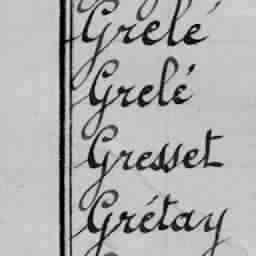 Grelé
Grelé
Gresset
Grétay